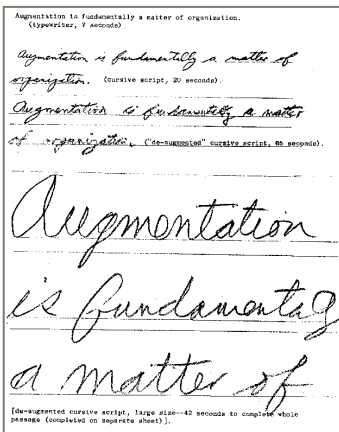 Augmentation is fundamentally a matter of organization.
(typewriter, 7 seconds)
Augmentation is fundamentally a matter of
organization. (cursive script, 20 seconds).
Augmentation is fundamentally a matter
of organization. ("de-augmented" cursive script, 65 seconds).
Augmentation
is fundamental
a matter of
[de-augmented cursive script, large size--42 seconds to complete whole
passage (completed on separate sheet)].